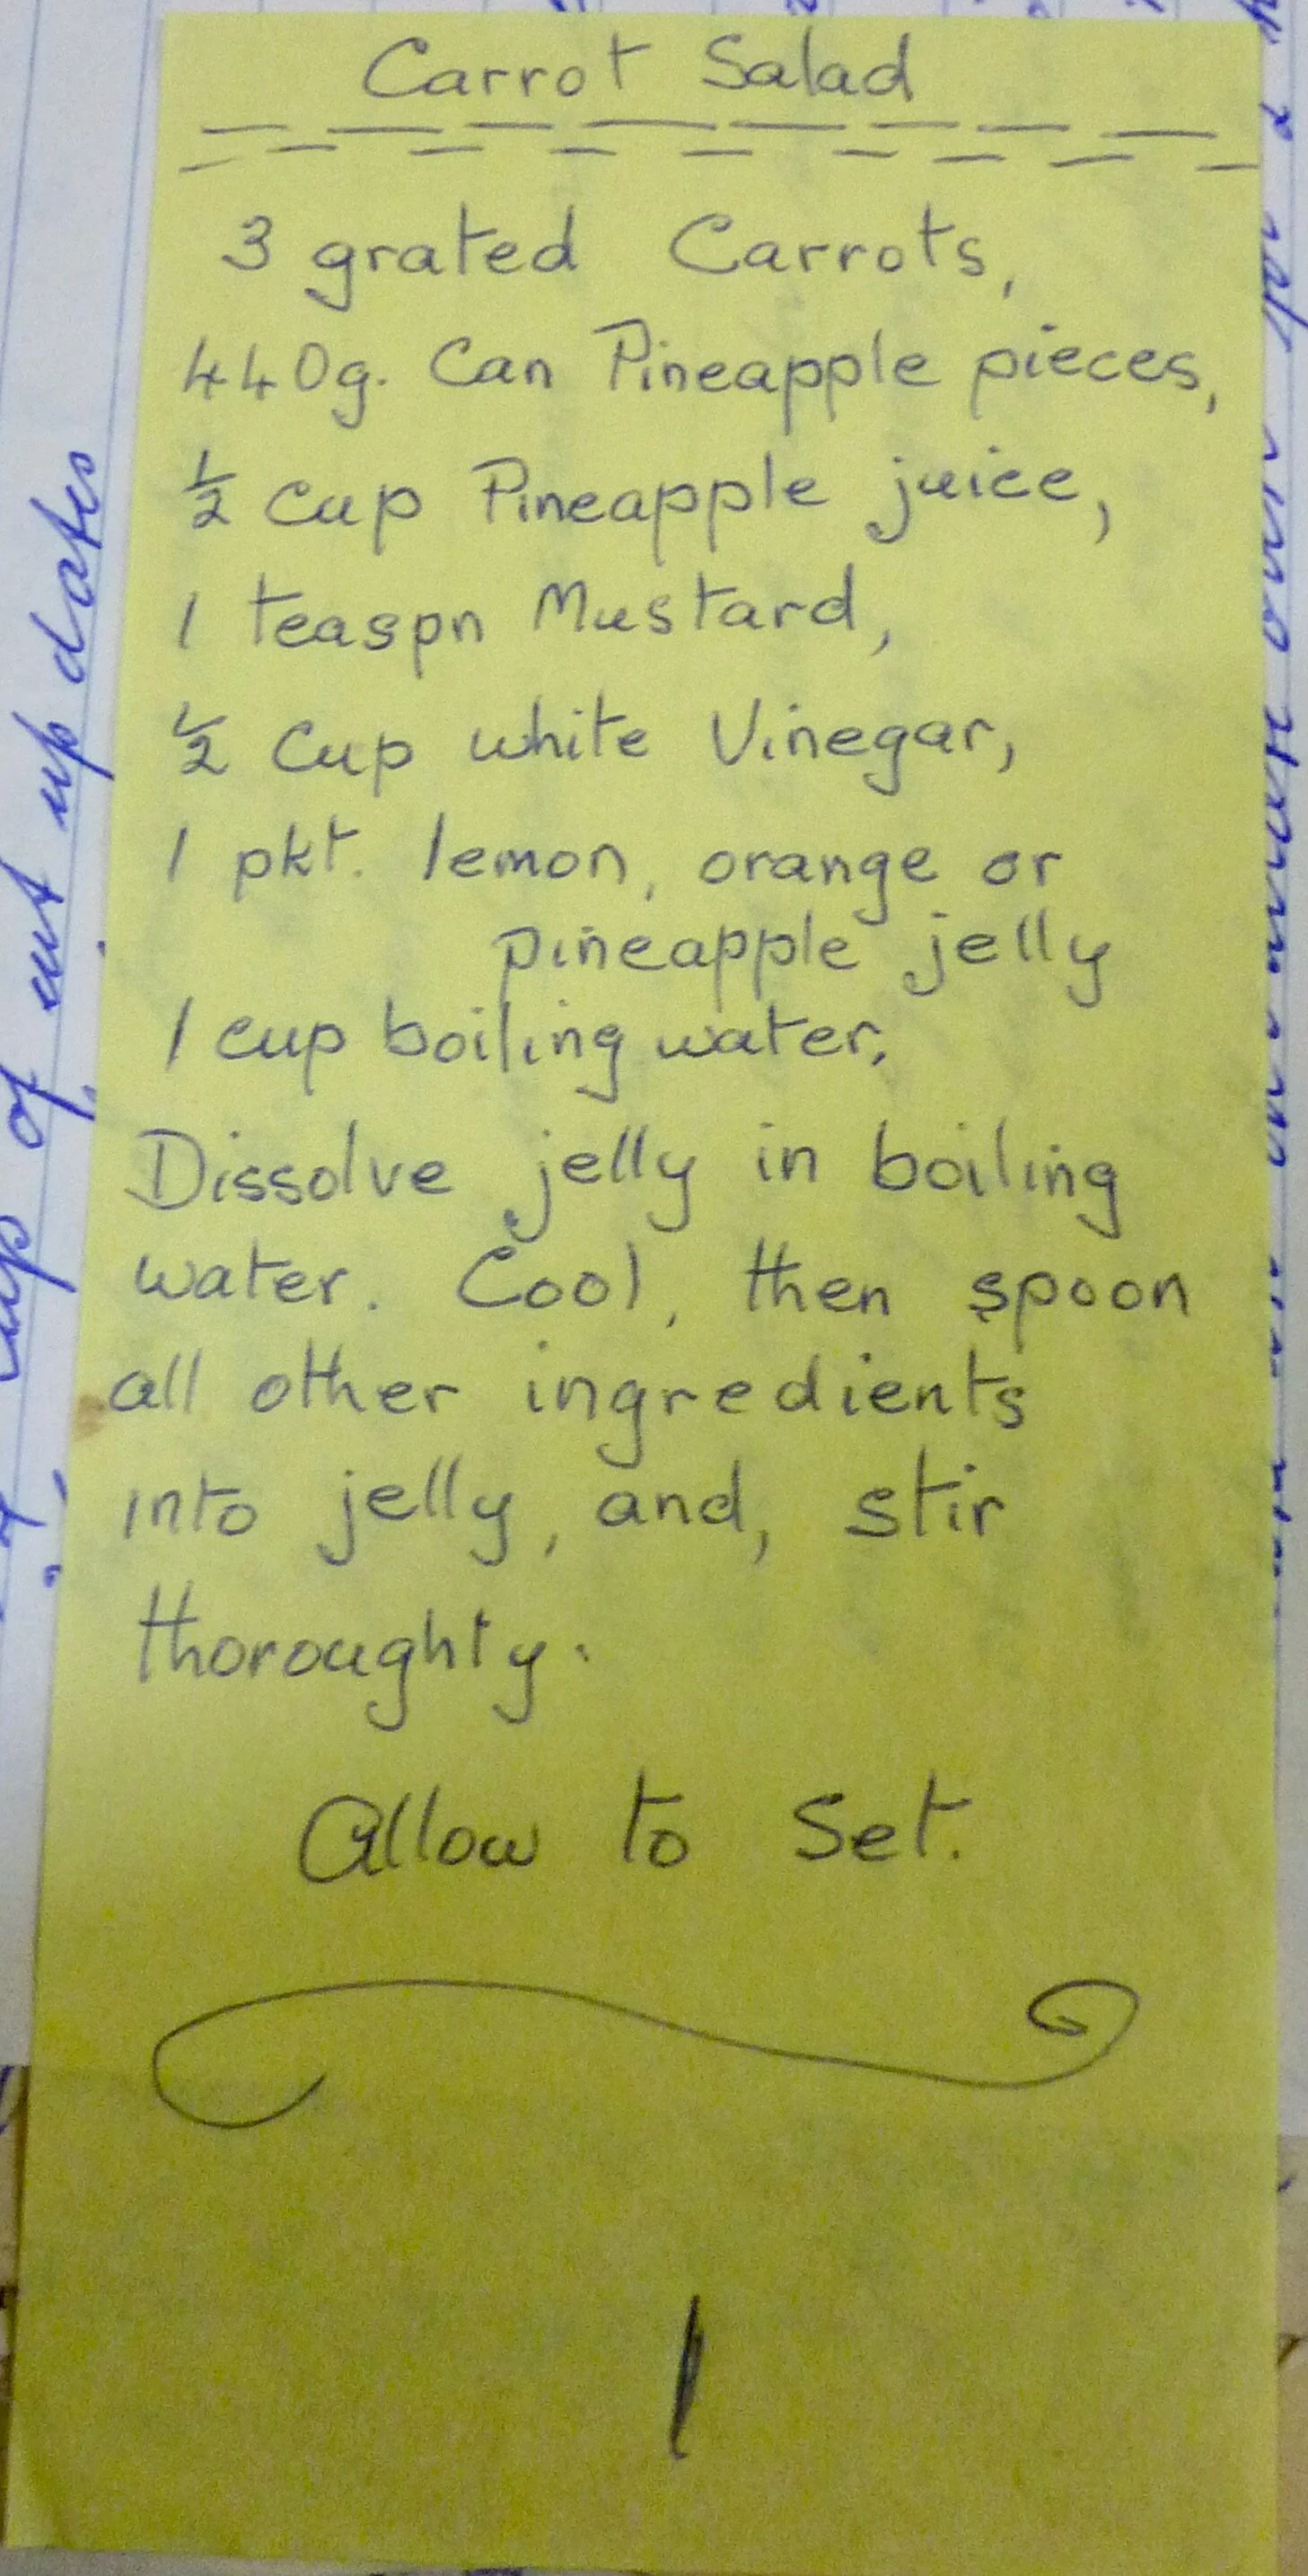 Carrot Salad
3 grated Carrots,
440g. Can Pineapple pieces,
½ cup Pineapple juice,
1 teaspn Mustard,
½ Cup white Vinegar,
1 pkt. lemon, orange or
pineapple jelly
1 cup boiling water.
Dissolve jelly in boiling
water. Cool, then spoon
all other ingredients
into jelly, and, stir
thoroughty.
Allow to Set.
1
of cut up dates